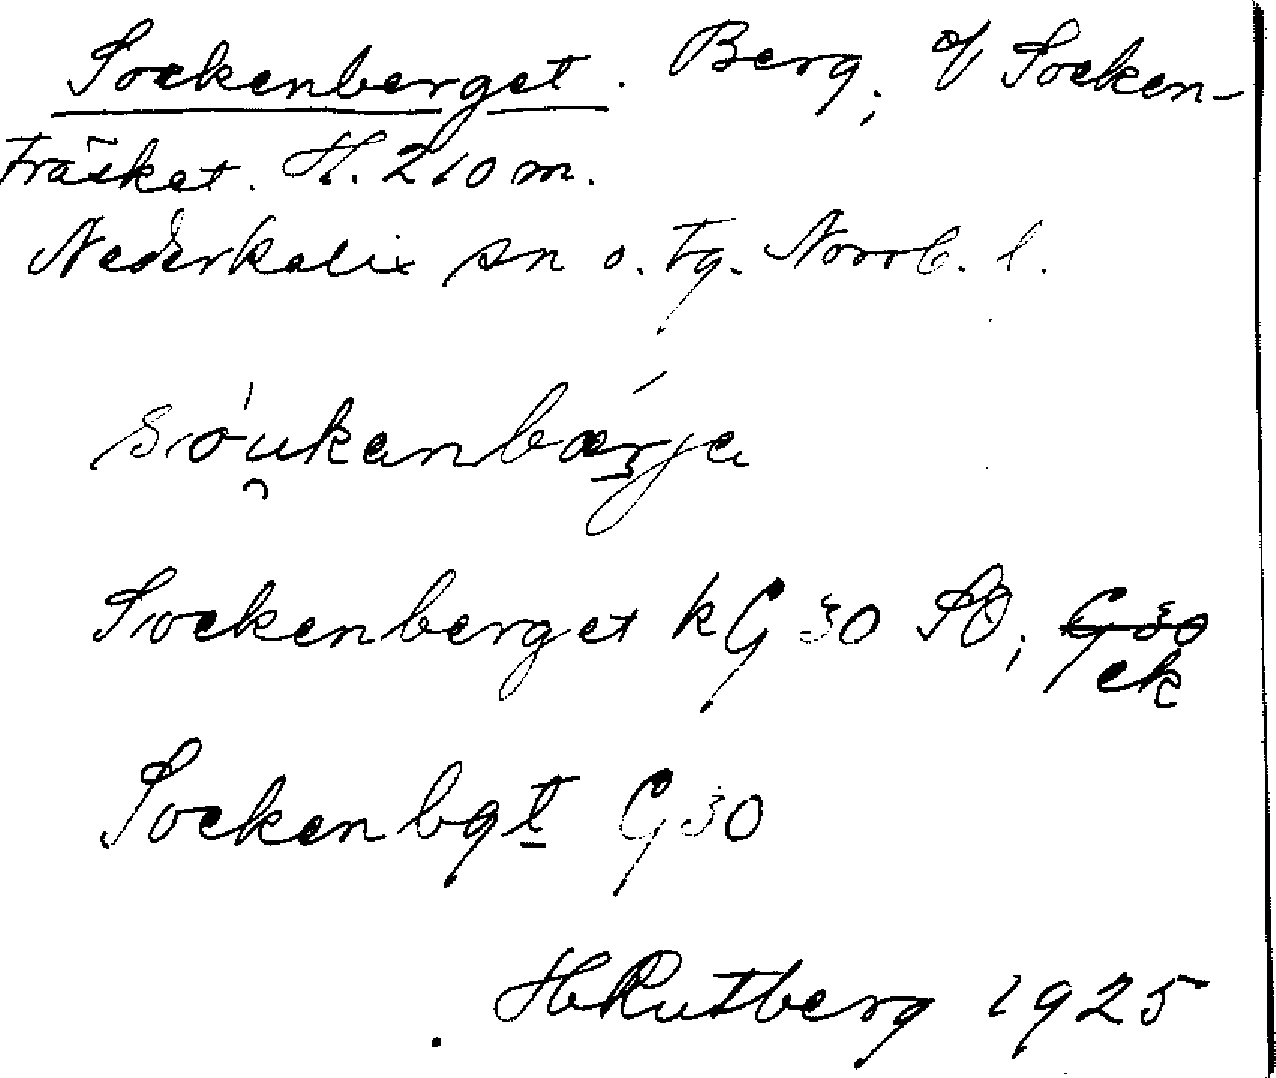 Sockenberget. Berg, o/ Socken-
träsket. H. 210 m.
Nederkalix sn o. tg. Norrb. l.
sóukanbærja
Sockenberget kG 30 SO; G 30
ek
Sockenbgt G 30
H Rutberg 1925